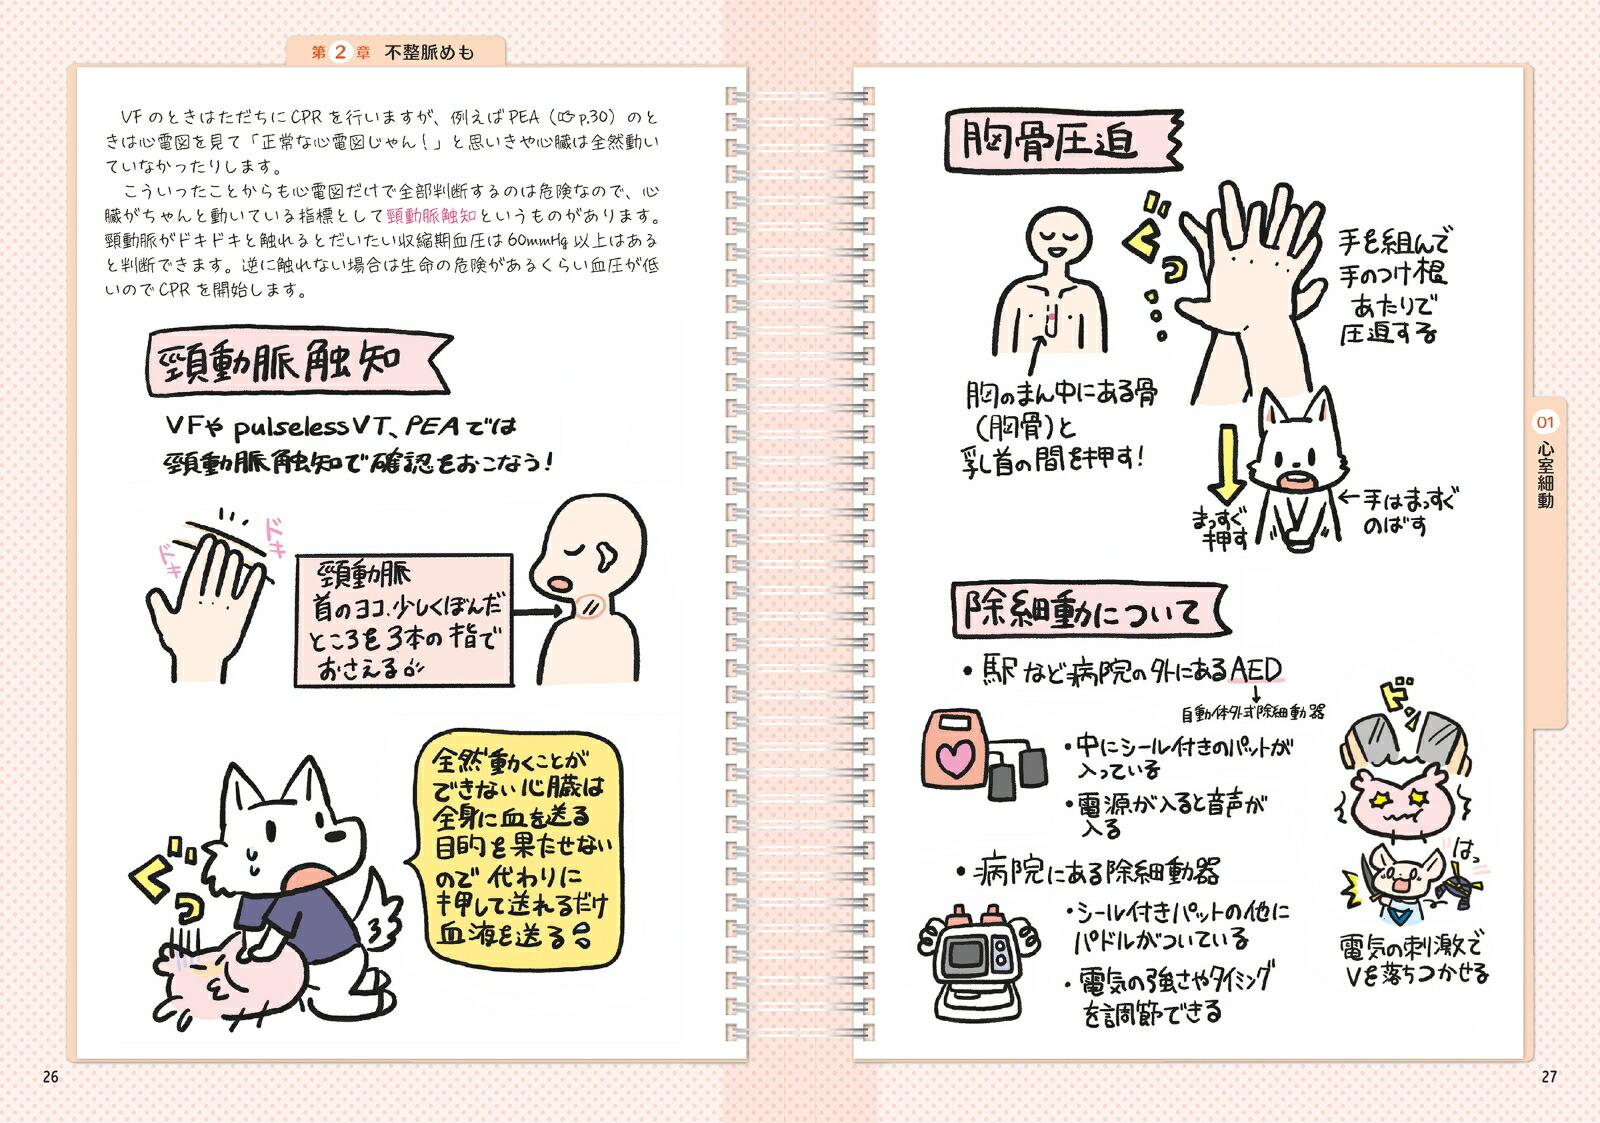 第2章 不整脈めも
VFのときはただちにCPRを行いますが、例えばPEA（☞p.30）のと
きは心電図を見て「正常な心電図じゃん！」と思いきや心臓は全然動い
ていなかったりします。
こういったことからも心電図だけで全部判断するのは危険なので、心
臓がちゃんと動いている指標として頸動脈触知というものがあります。
頸動脈がドキドキと触れるとだいたい収縮期血圧は60mmHg以上はある
と判断できます。逆に触れない場合は生命の危険があるくらい血圧が低
いのでCPRを開始します。
頸動脈触知
VFや pulselessVT、PEAでは
頸動脈触知で確認をおこなう!
ドキ
ドキ
頸動脈
首のヨコ、少しくぼんだ
ところを3本の指で
おさえる
全然動くことが
できない心臓は
全身に血を送る
目的を果たせない
ので代わりに
押して送れるだけ
血液を送る
ぐっ
26
胸骨圧迫
ぐっ
手を組んで
手のつけ根
あたりで
圧迫する
胸のまん中にある骨
(胸骨)と
乳首の間を押す!
まっすぐ
押す
←手はまっすぐ
のばす
除細動について
・駅など病院の外にあるAED
自動体外式除細動器
・中にシール付きのパットが
入っている
・電源が入ると音声が
入る
・病院にある除細動器
・シール付きパットの他に
パドルがついている
・電気の強さやタイミング
を調節できる
ドン
はっ
電気の刺激で
Vを落ちつかせる
01 心室細動
27